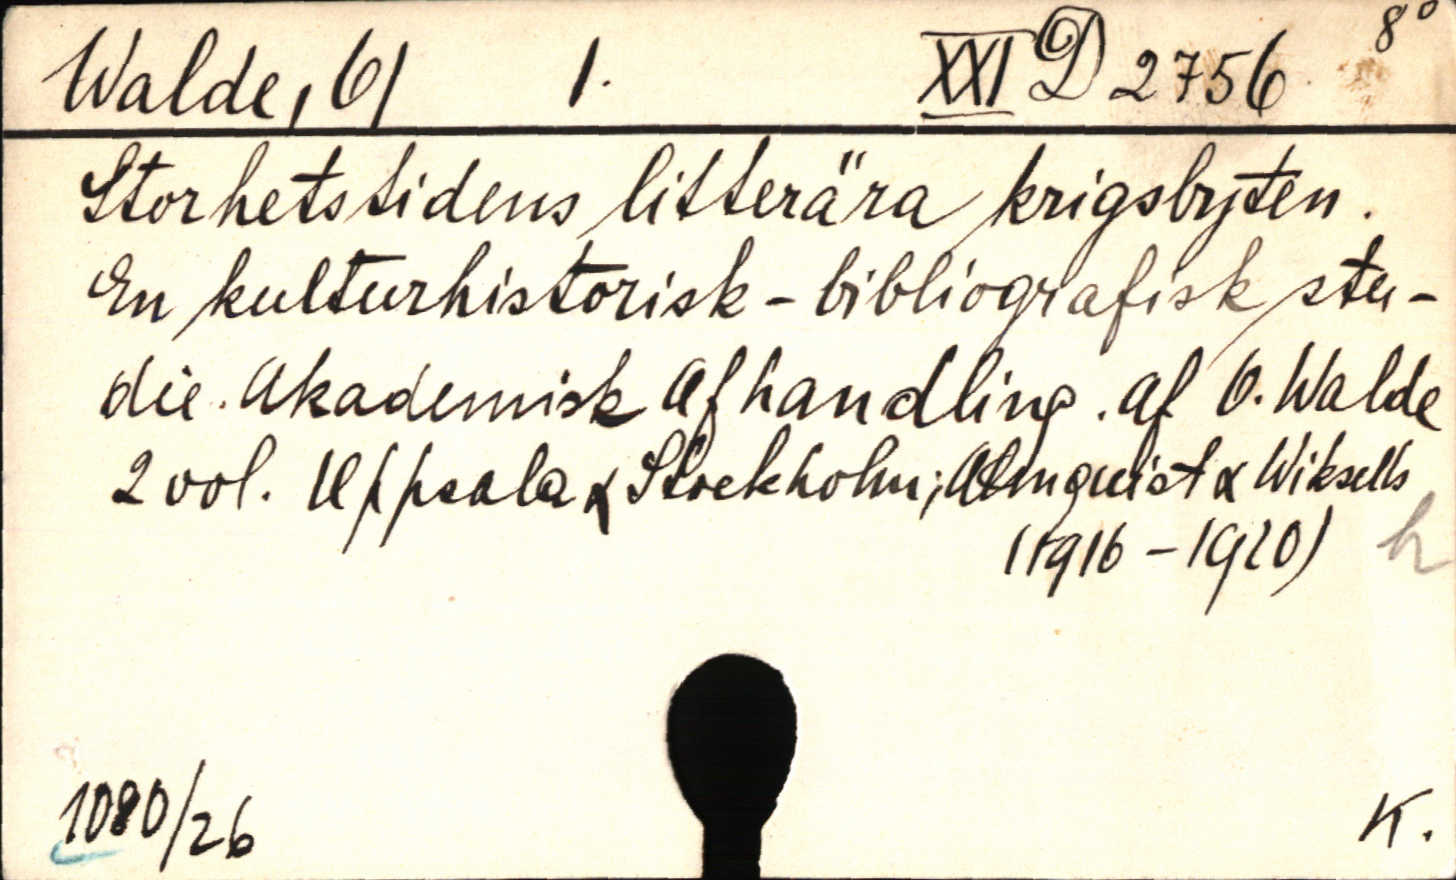 Walde, O/ 1. XXI D 2756 8°
Storhetstidens litterära krigsbyten.
En kulturhistorisk-bibliografisk stu-
die. Akademisk Afhandling. af O. Walde
2 vol. Uppsala & Stockholm; Almquist & Wiksells
(1916-1920) h
1080/26 K.